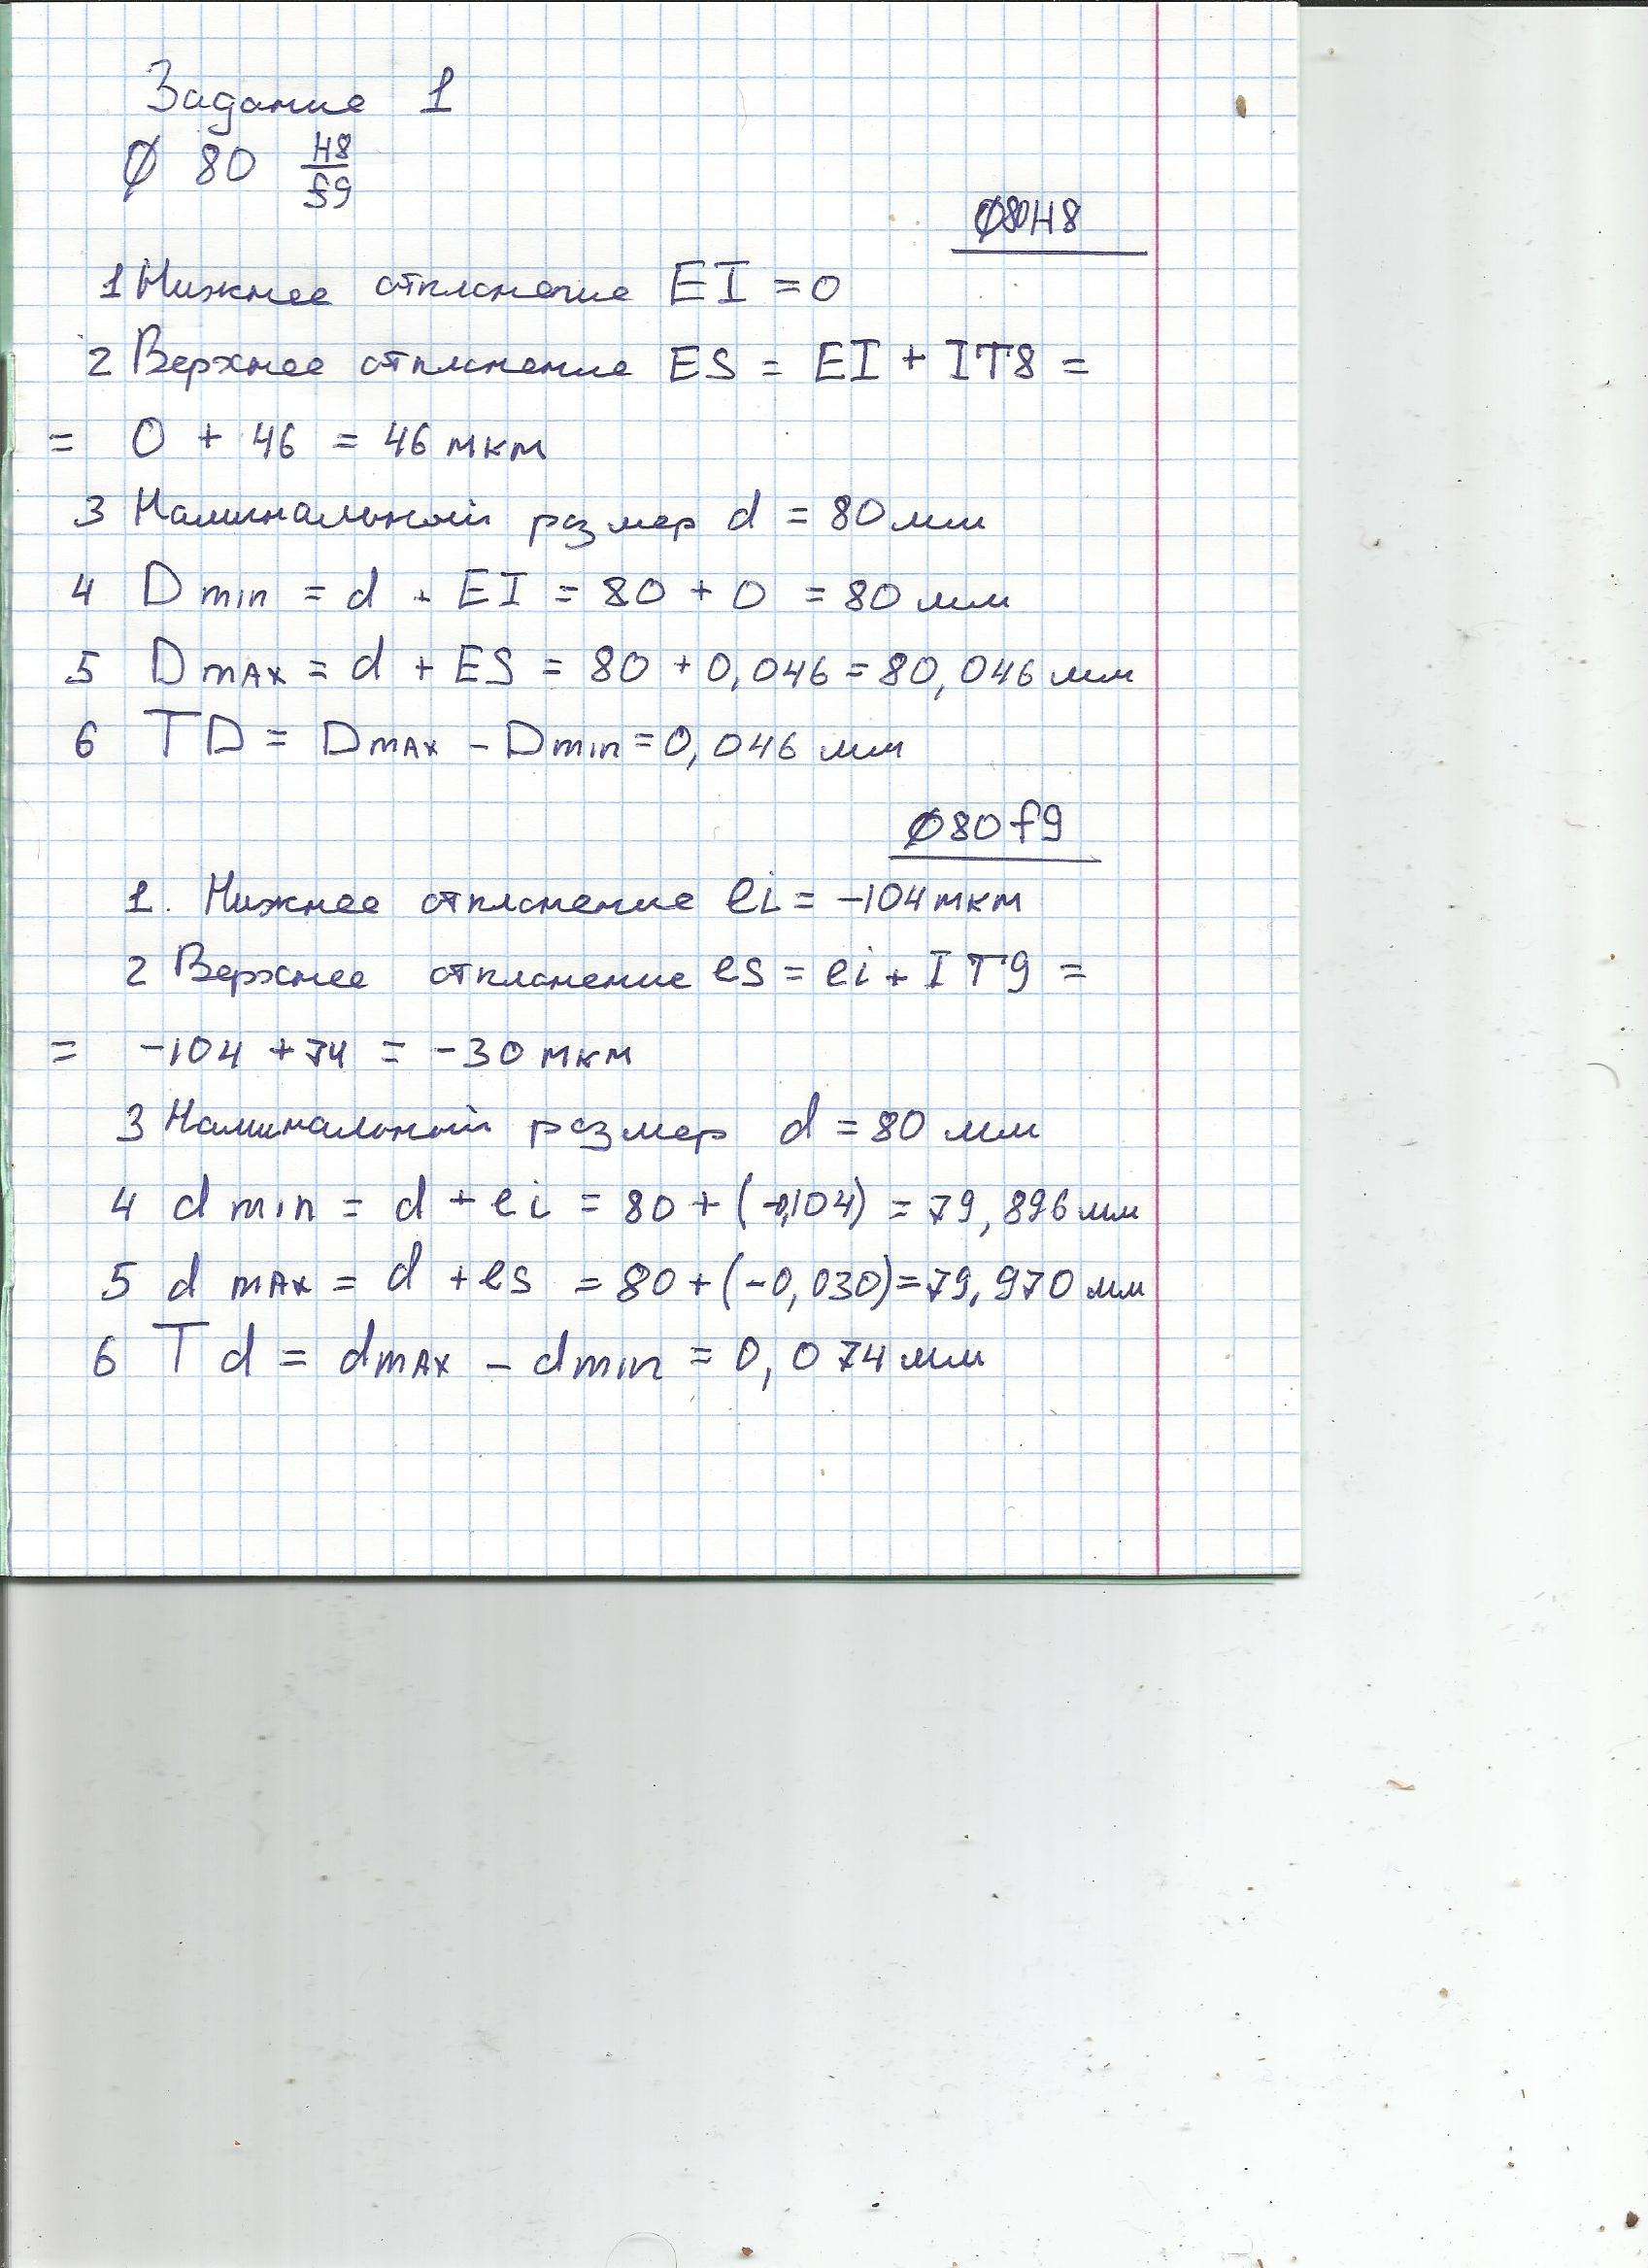 Задание 1
Ø 80 H8/f9
Ø80H8
1 Нижнее отклонение EI = 0
2 Верхнее отклонение ES = EI + IT8 =
= 0 + 46 = 46 мкм
3 Номинальный размер d = 80 мм
4 D min = d + EI = 80 + 0 = 80 мм
5 D max = d + ES = 80 + 0,046 = 80,046 мм
6 TD = Dmax - Dmin = 0,046 мм
Ø80f9
1. Нижнее отклонение ei = -104 мкм
2 Верхнее отклонение es = ei + IT9 =
= -104 + 74 = -30 мкм
3 Номинальный размер d = 80 мм
4 d min = d + ei = 80 + (-0,104) = 79,896 мм
5 d max = d + es = 80 + (-0,030) = 79,970 мм
6 Td = dmax - dmin = 0,074 мм